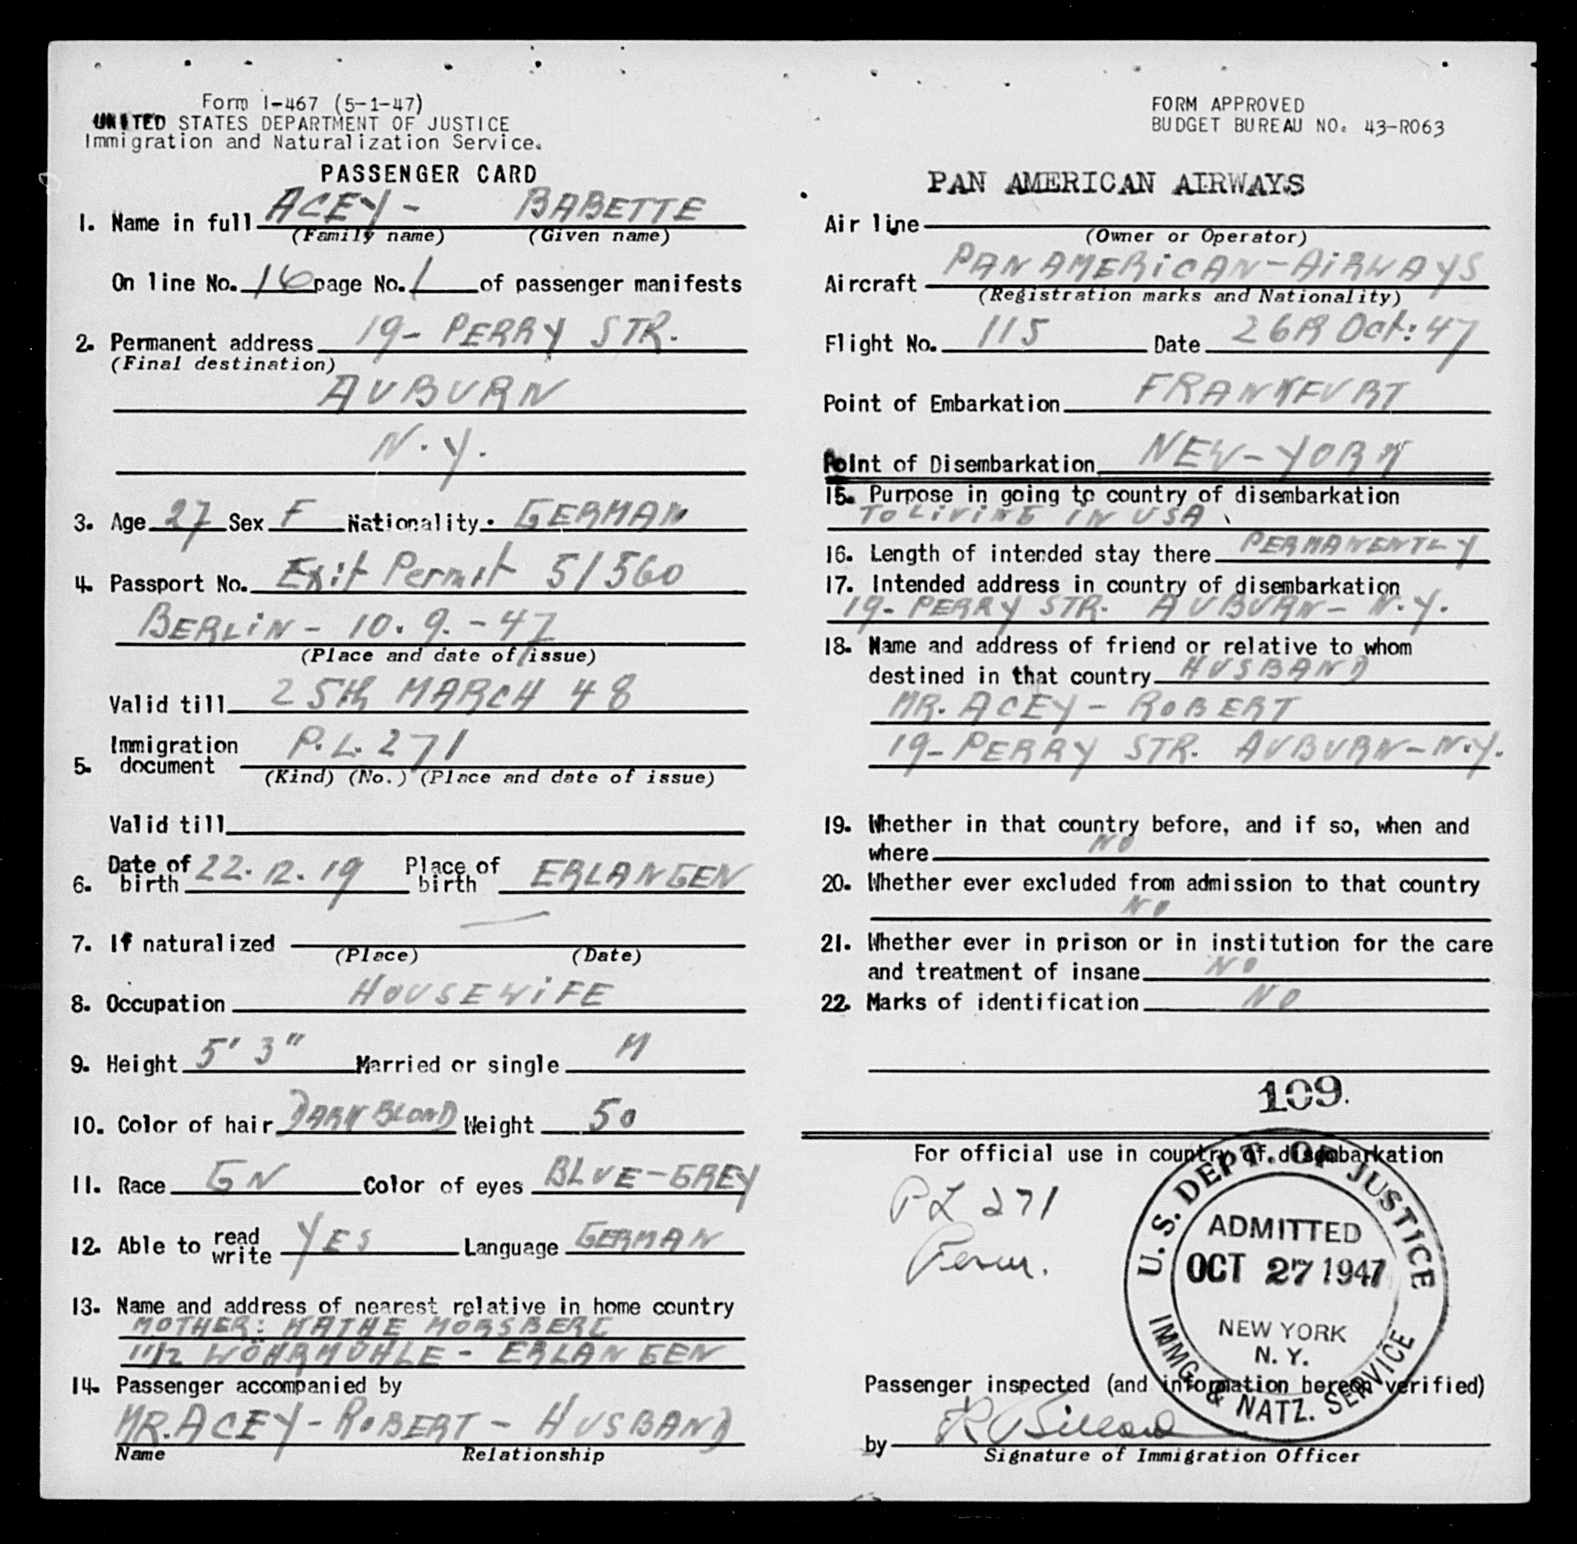 Form I-467 (5-1-47)
UNITED STATES DEPARTMENT OF JUSTICE
Immigration and Naturalization Service.
PASSENGER CARD
1. Name in full ACEY - BABETTE
(Family name) (Given name)
On line No. 16 page No. 1 of passenger manifests
2. Permanent address 19- PERRY STR.
(Final destination)
AUBURN
N.Y.
3. Age 27 Sex F Nationality. GERMAN
4. Passport No. Exit Permit 51560
BERLiN - 10.9.-47
(Place and date of issue)
Valid till 25th MARCH 48
5. Immigration document P.L. 271
(Kind) (No.) (Place and date of issue)
Valid till
6. Date of birth 22.12.19 Place of birth ERLANGEN
7. If naturalized —
(Place) (Date)
8. Occupation HOUSEWiFE
9. Height 5' 3" Married or single M
10. Color of hair DARK BLOND Weight 50
11. Race GN Color of eyes BLUE-GREY
12. Able to read write YES Language GERMAN
13. Name and address of nearest relative in home country
MOTHER: KATHE
11 1/2 WÖHRMÜHLE - ERLANGEN
14. Passenger accompanied by
MR. ACEY - ROBERT - HUSBAND
Name Relationship
FORM APPROVED
BUDGET BUREAU NO. 43-R063
PAN AMERICAN AIRWAYS
Air line
(Owner or Operator)
Aircraft PAN AMERiCAN - AiRWAYS
(Registration marks and Nationality)
Flight No. 115 Date Oct: 47
Point of Embarkation FRANKFURT
Point of Disembarkation NEW-YORK
15. Purpose in going to country of disembarkation
TO LiViNG iN USA
16. Length of intended stay there PERMANENTLY
17. Intended address in country of disembarkation
19- PERRY STR. AUBURN - N.Y.
18. Name and address of friend or relative to whom
destined in that country HUSBAND
MR. ACEY - ROBERT
19- PERRY STR. AUBURN - N.Y.
19. Whether in that country before, and if so, when and
where NO
20. Whether ever excluded from admission to that country
NO
21. Whether ever in prison or in institution for the care
and treatment of insane NO
22. Marks of identification NO
109.
For official use in country of disembarkation
PL 271
U.S. DEPT. OF JUSTICE
ADMITTED
OCT 27 1947
NEW YORK
N. Y.
IMMG. & NATZ. SERVICE
Passenger inspected (and information hereon verified)
by
Signature of Immigration Officer